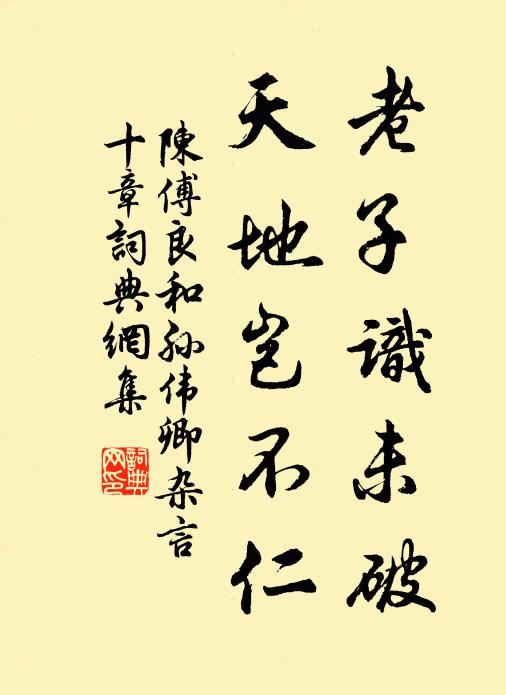 老子識未破
天地岂不仁
陳傅良和孙伟卿杂言
十章詞典網集
詞典网印